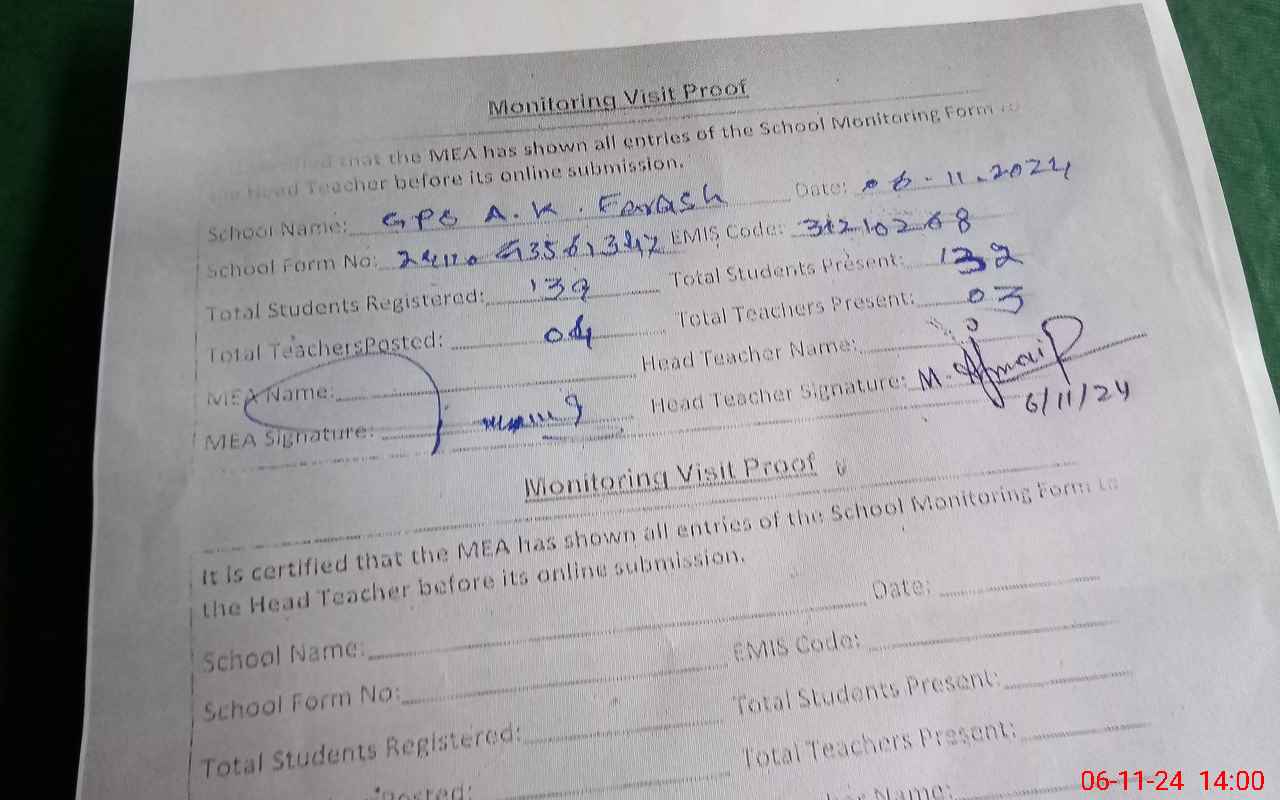 Monitoring Visit Proof
that the MEA has shown all entries of the School Monitoring Form to
the Head Teacher before its online submission.
School Name: GPS A.K. Farash Date: 06-11-2024
School Form No: EMIS Code: 31210268
Total Students Registered: 139 Total Students Present: 132
Total TeachersPosted: 04 Total Teachers Present: 03
MEA Name: Head Teacher Name:
MEA Signature: Head Teacher Signature: M.
6/11/24
Monitoring Visit Proof
It is certified that the MEA has shown all entries of the School Monitoring Form to
the Head Teacher before its online submission.
School Name: Date:
School Form No: EMIS Code:
Total Students Registered: Total Students Present:
Posted: Total Teachers Present:
Name:
06-11-24 14:00